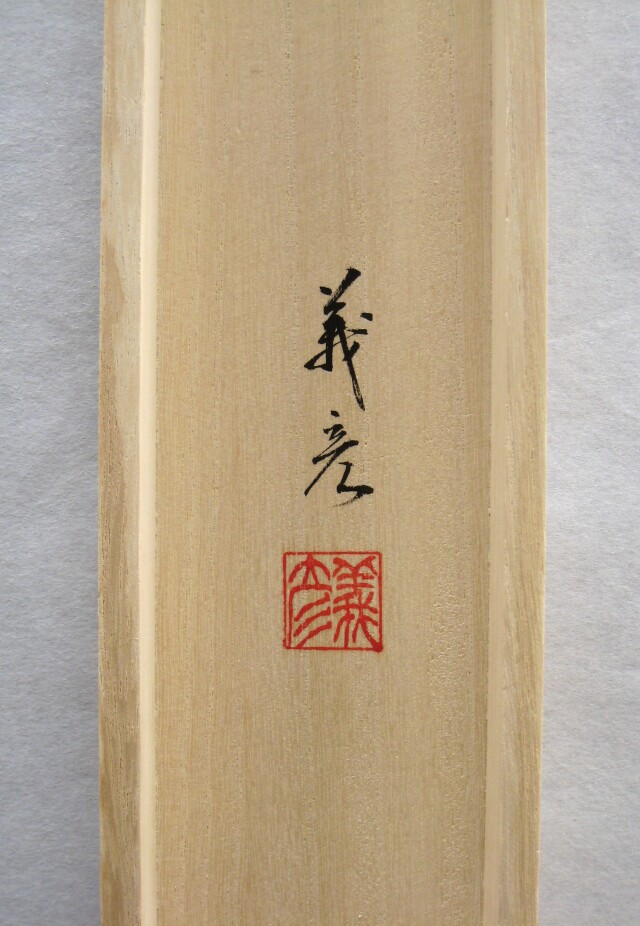 義彦
義彦